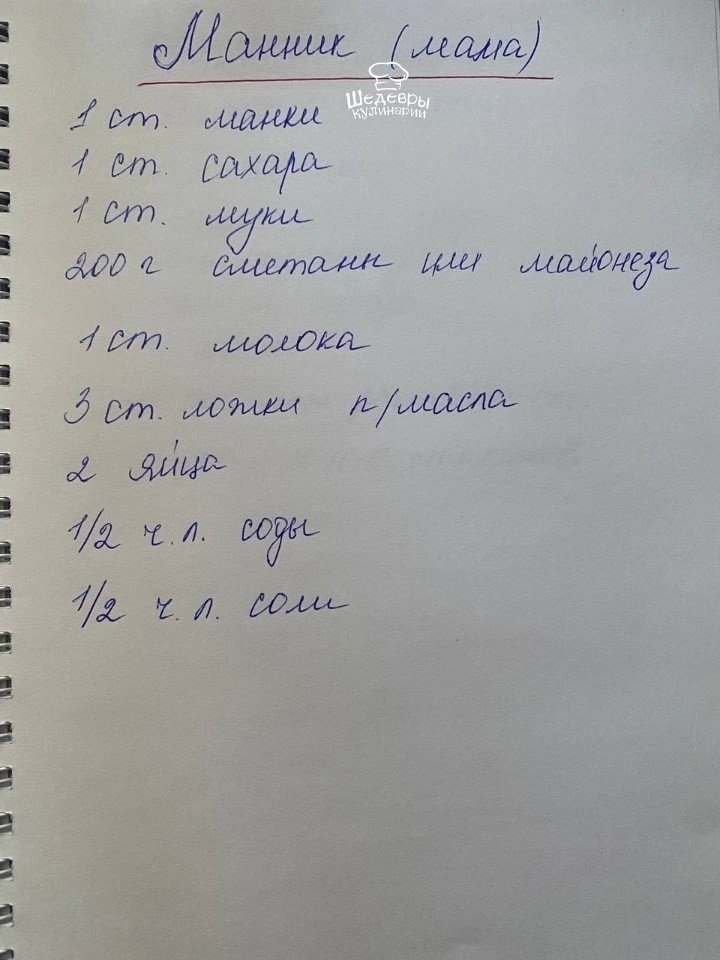 Манник (мама)
Шедевры
кулинарии
1 ст. манки
1 ст. сахара
1 ст. муки
200 г сметаны или майонеза
1 ст. молока
3 ст. ложки п/масла
2 яйца
1/2 ч.л. соды
1/2 ч.л. соли